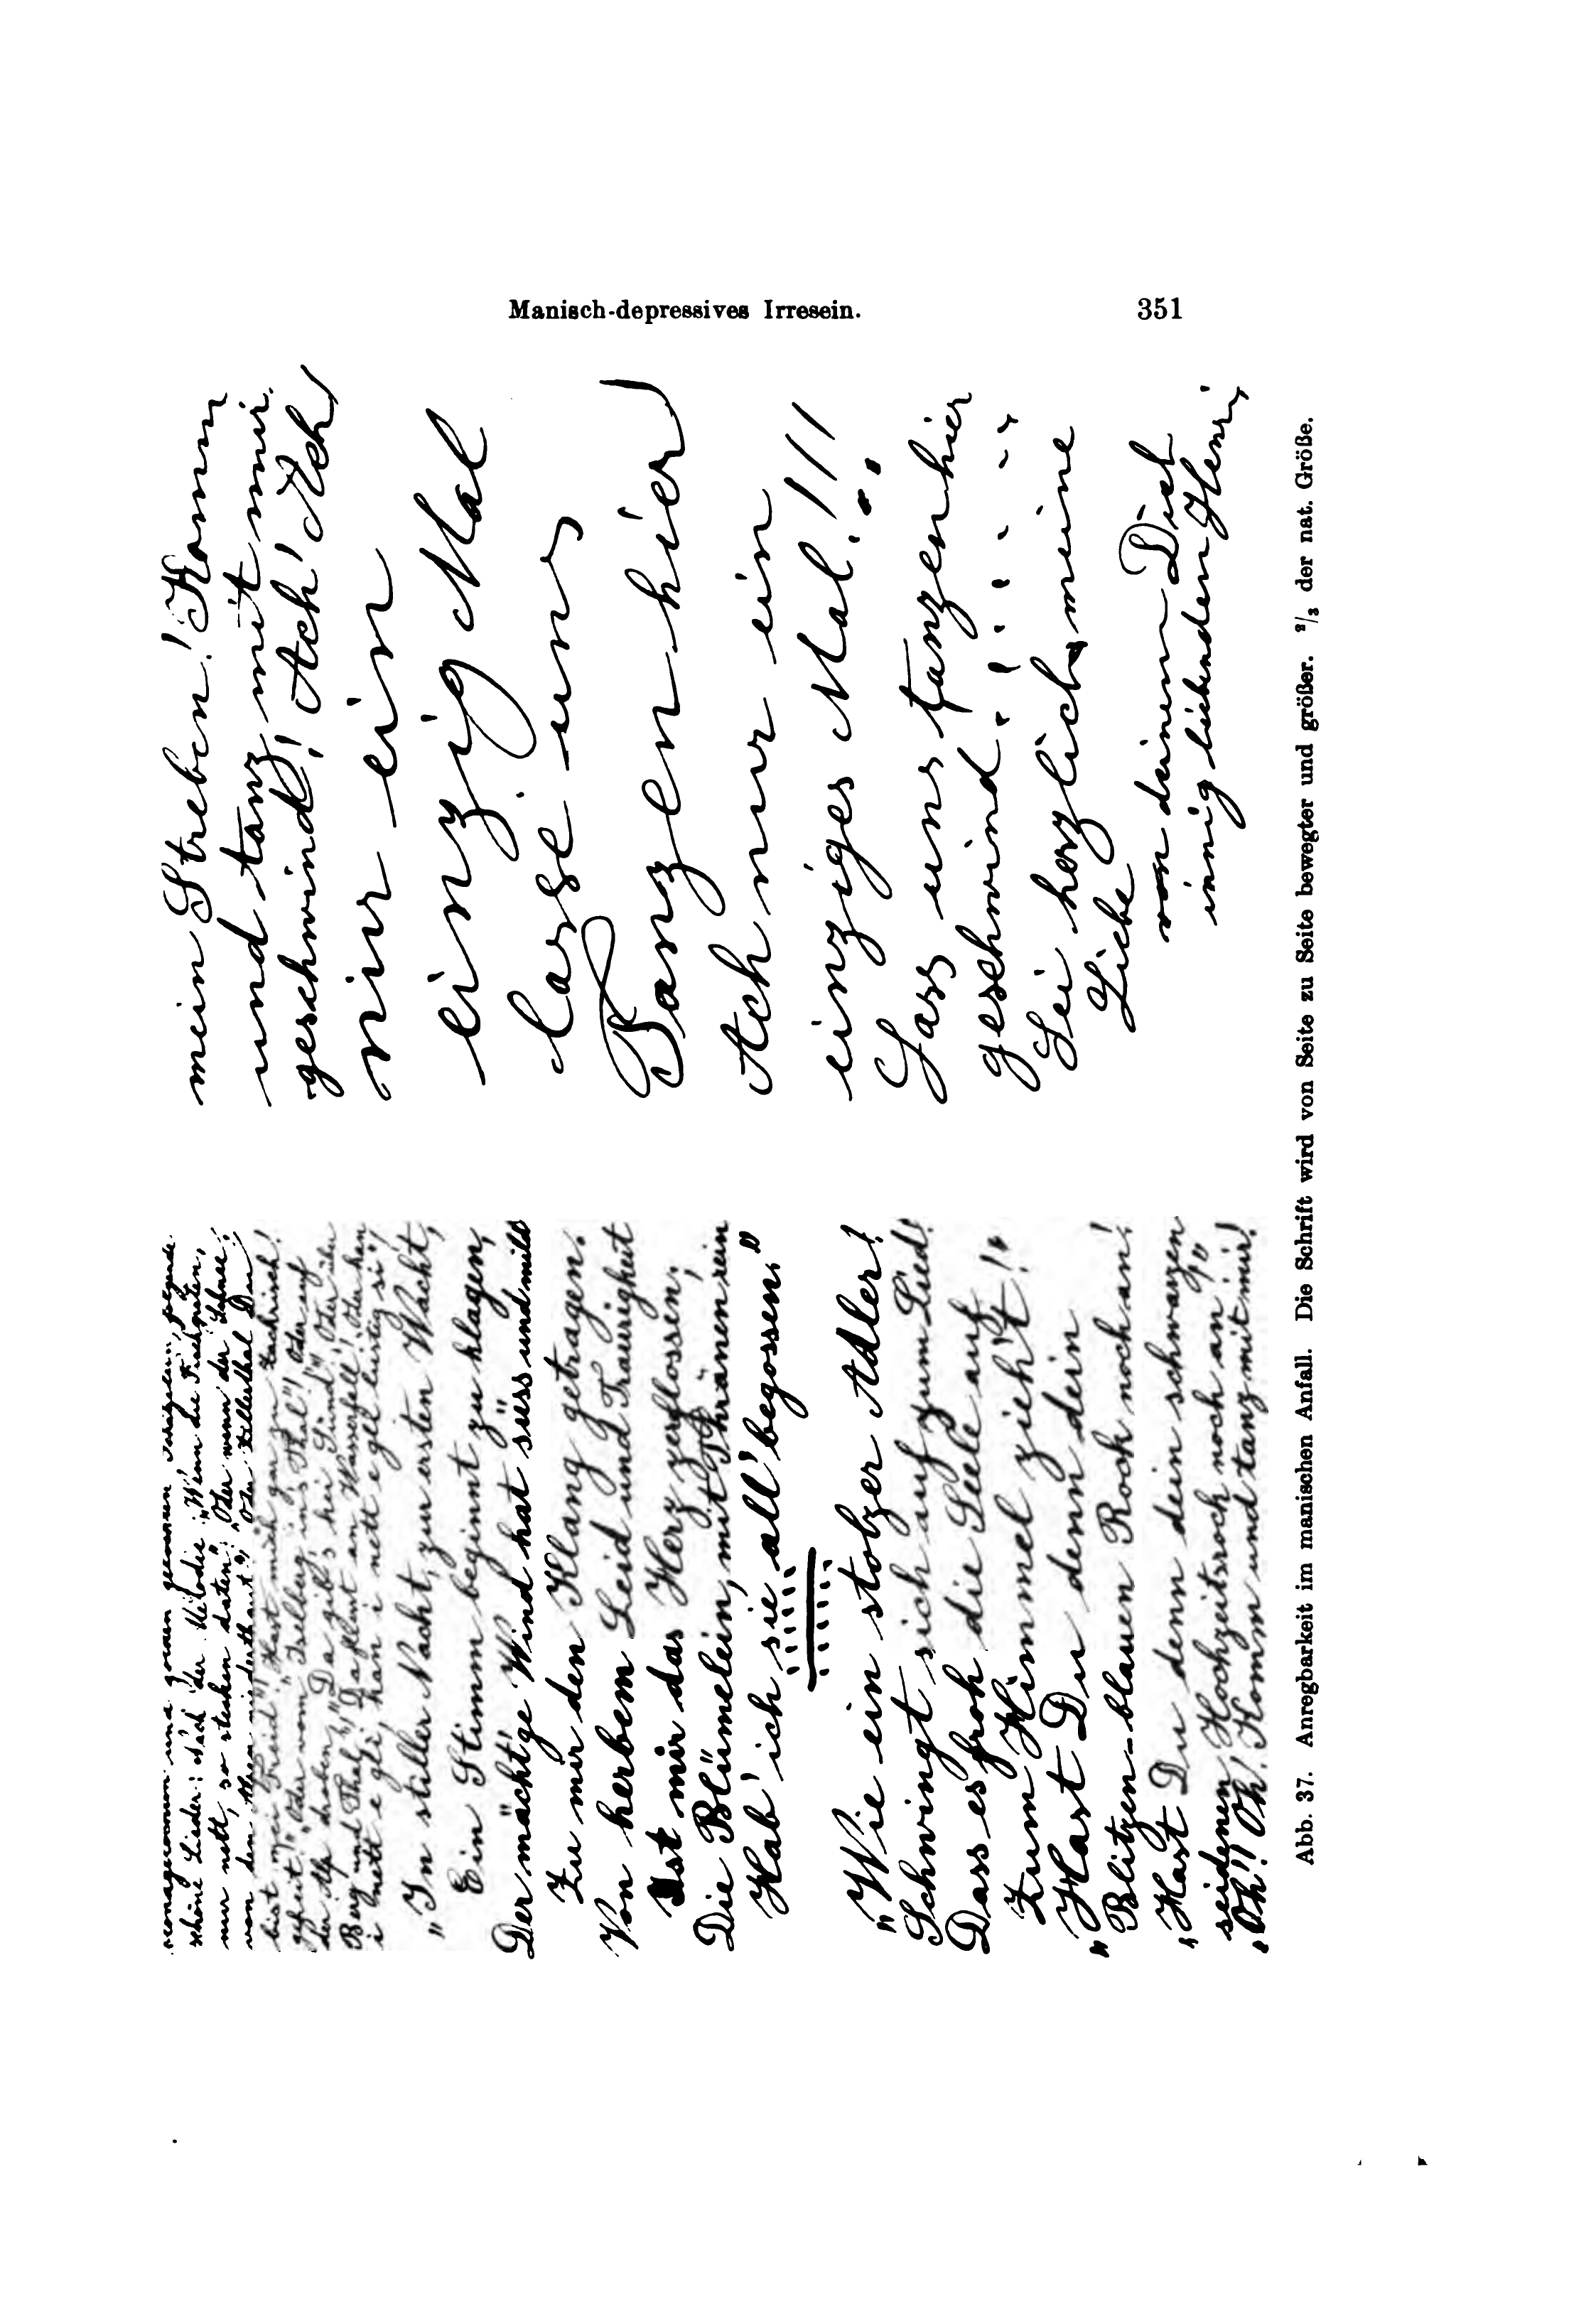 Manisch-depressives Irresein. 351
schöne Lieder: Nach der Melodie: „Wenn die
nur nett, so stehen daten". „Oder wenn der Schnee
von den Alma Oder Zillerthal Du
bist mei Freud"! Hast mich gar zu
gefreut". Oder vom Iselberg ins Thal"! Oder auf
der Alp droben" „Da gibt's kei Sünd"! Oder über
Berg und Thal" am Wasserfall! Oder han
i nett e geli, han i nett e gel lustig si",
„In stiller Nacht, zur ersten Wacht,
Ein Stimm beginnt zu klagen,
Der mächt'ge Wind hat süss und mild
Zu mir den Klang getragen.
Von herbem Leid und Traurigkeit
Ist mir das Herz zerflossen,
Die Blümelein, mit Thränen rein
Hab' ich sie all' begossen."
„Wie ein stolzer Adler!
Schwingt sich auf zum Lied!
Dass es froh die Seele auf
Zum Himmel zieh't!"
„Hast Du denn dein
Blitzen-blauen Rock noch an!
„Hast Du denn dein schwarzen
seidenen Hochzeitsrock noch an?"
„Oh!! Oh! Komm und tanz mit mir!
mein Streben! Komm
und tanz mit mir.
geschwind! Ach! Ach
nur ein
einzig Mal
lasse uns
Tanzen hier
Ach nur ein
einziges Mal!!!
Lass uns tanzen hier
geschwind!
Sei herzlich meine
Liebe
von deinem Dich
innig liebenden Henri
Abb. 37. Anregbarkeit im manischen Anfall. Die Schrift wird von Seite zu Seite bewegter und größer. ²/₃ der nat. Größe.